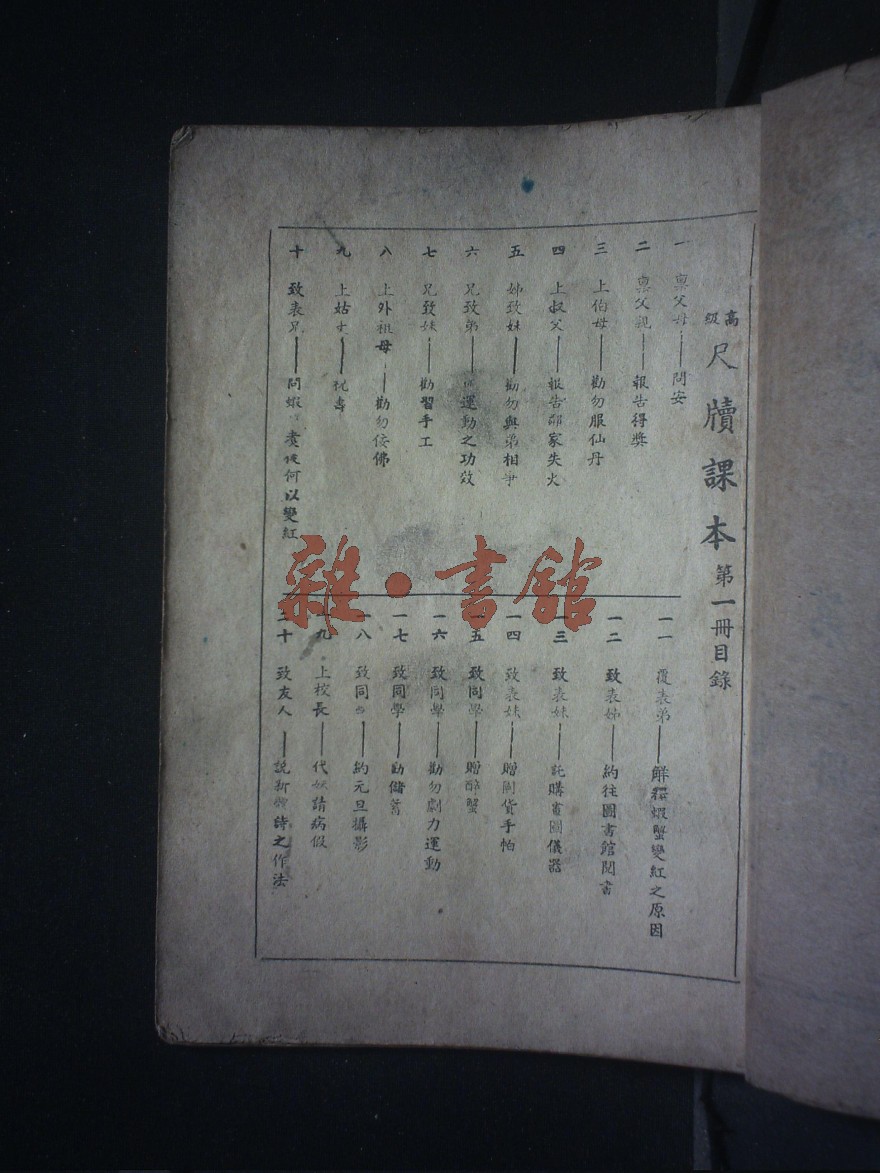 高級 尺牘課本 第一冊目錄
一 稟父母——問安
二 稟父親——報告得獎
三 上伯母——勸勿服仙丹
四 上叔父——報告鄰家失火
五 姊致妹——勸勿與弟相爭
六 兄致弟——運動之功效
七 兄致妹——勸習手工
八 上外祖母——勸勿佞佛
九 上姑丈——祝壽
十 致表兄——問蝦煮後何以變紅
一一 覆表弟——解釋蝦蟹變紅之原因
一二 致表姊——約往圖書館閱書
一三 致表妹——託購畫圖儀器
一四 致表妹——贈國貨手帕
一五 致同學——贈醉蟹
一六 致同學——勸勿劇力運動
一七 致同學——勸儲蓄
一八 致同學——約元旦攝影
一九 上校長——代妹請病假
二十 致友人——說新詩之作法
雜·書館